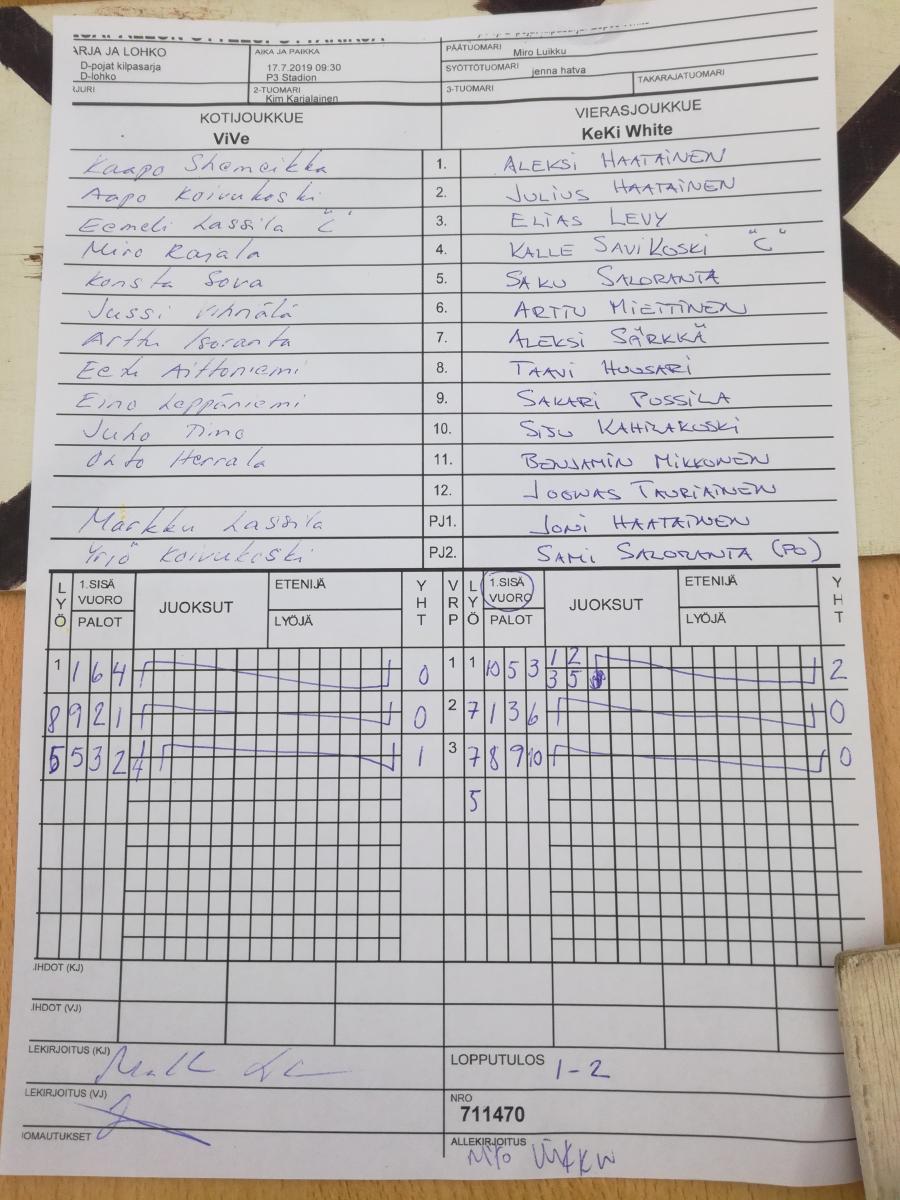 ARJA JA LOHKO
D-pojat kilpasarja
D-lohko
AIKA JA PAIKKA
17.7.2019 09:30
P3 Stadion
2-TUOMARI
Kim Karjalainen
PÄÄTUOMARI Miro Luikku
SYÖTTÖTUOMARI jenna hatva
3-TUOMARI
TAKARAJATUOMARI
KOTIJOUKKUE
ViVe
VIERASJOUKKUE
KeKi White
Kaapo Shemeikka 1. ALEKSI HAATAINEN
Aapo Koivukoski 2. JULIUS HAATAINEN
Eemeli Lassila "C" 3. ELIAS LEVY
Miro Rajala 4. KALLE SAVIKOSKI "C"
Konsta Sova 5. SAKU SALORANTA
Jussi Vihriälä 6. ARTTU MIETTINEN
Arttu Isoranta 7. ALEKSI SÄRKKÄ
Eetu Aittoniemi 8. TAAVI HUUSARI
Eino Leppäniemi 9. SAKARI PUSSILA
Juho Timo 10. SISU KAHILAKOSKI
Ohto Herrala 11. BENJAMIN MIKKONEN
12. JOONAS TAURIAINEN
Markku Lassila PJ1. JONI HAATAINEN
Yrjö Koivukoski PJ2. SAMI SALORANTA (PO)
LYÖ 1.SISÄ VUORO PALOT JUOKSUT ETENIJÄ LYÖJÄ YHT VRP LYÖ 1.SISÄ VUORO PALOT JUOKSUT ETENIJÄ LYÖJÄ YHT
1 1 6 4 0 1 1 10 5 3 1 2 2
3 5
8 9 2 1 0 2 7 1 3 6 0
5 5 3 2 4 1 3 7 8 9 10 0
5
HDOT (KJ)
HDOT (VJ)
LEKIRJOITUS (KJ)
LOPPUTULOS 1-2
LEKIRJOITUS (VJ)
NRO
711470
OMAUTUKSET
ALLEKIRJOITUS